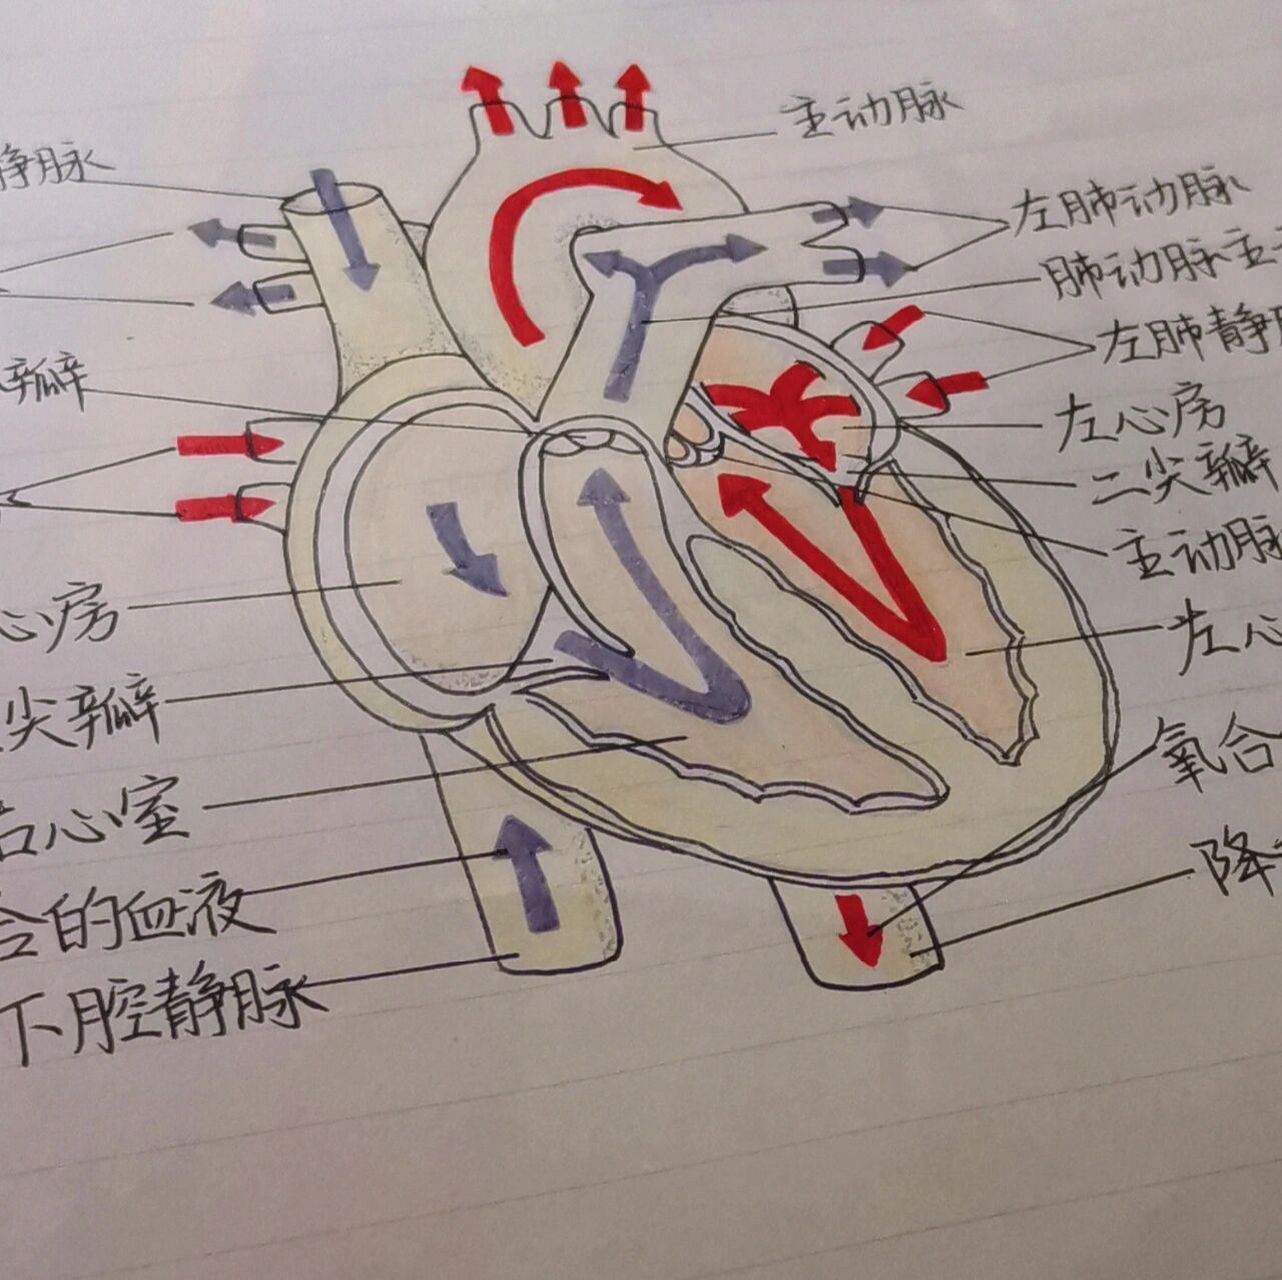 静脉
瓣
心房
尖瓣
右心室
合的血液
下腔静脉
主动脉
左肺动脉
肺动脉主
左肺静脉
左心房
二尖瓣
主动脉
左心
氧合
降